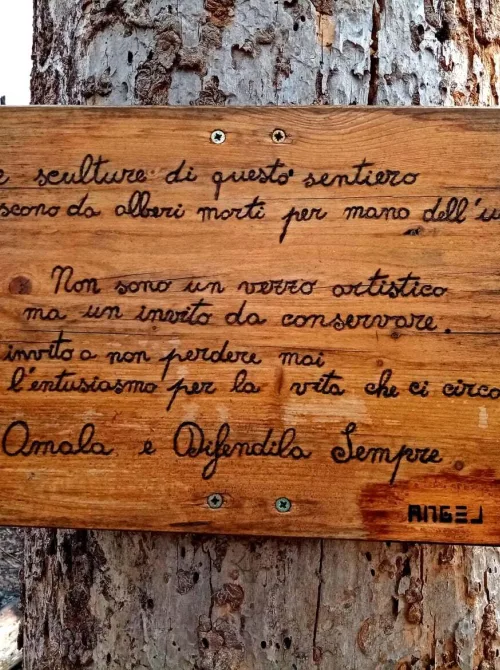 e sculture di questo sentiero
scono da alberi morti per mano dell'u
Non sono un vezzo artistico
ma un invito da conservare.
invito a non perdere mai
l'entusiasmo per la vita che ci circo
Amala e Difendila Sempre.
ANGEJ